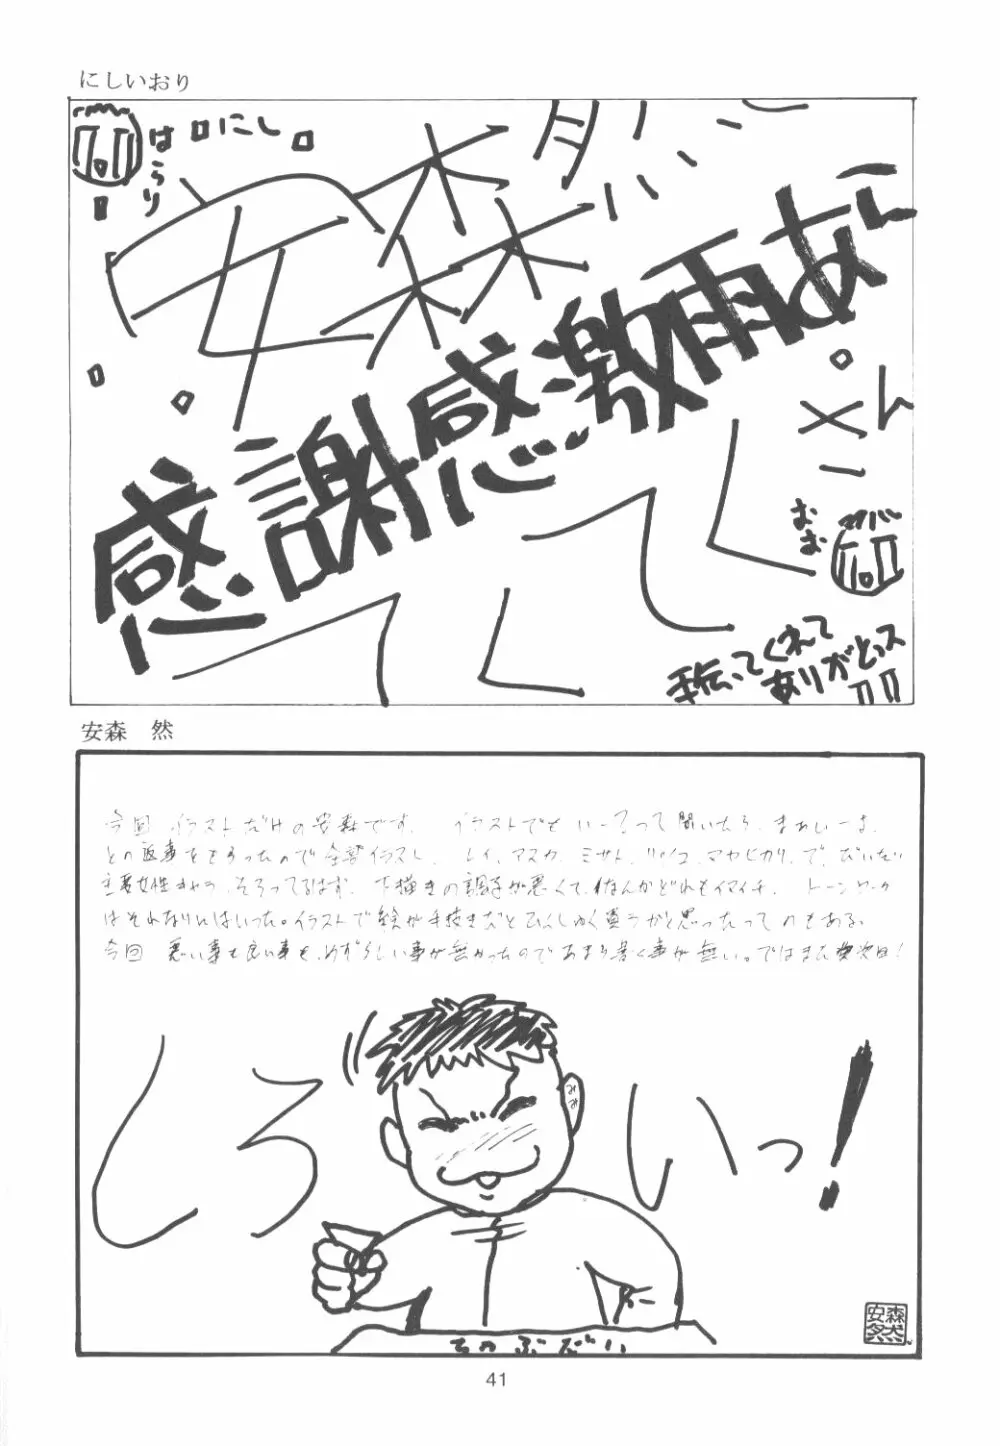 にしいおり
はらり
にし
安森然
感謝感激雨あ
おお
手伝ってくれて
ありがとっス
安森 然
今回 イラストだけの安森です。 イラストでもいーっスって聞いたら、まあいーよ、
との返事をもらったので全部イラスト。 レイ、アスカ、ミサト、リツコ、マヤ、ヒカリ、で、だいたい
主要女性キャラ、そろってるはず。下描きの調子が悪くて、なんかどれもイマイチ。 トーンワーク
はそれなりにはいった。イラストで 手抜きだとひんしゅく買うかと思ったってのもある。
今回 悪い事も良い事も、めずらしい事が無かったのであまり書く事が無い。ではまた次回!
しろいっ!
みみ
ちゃぶだい
安森然
41